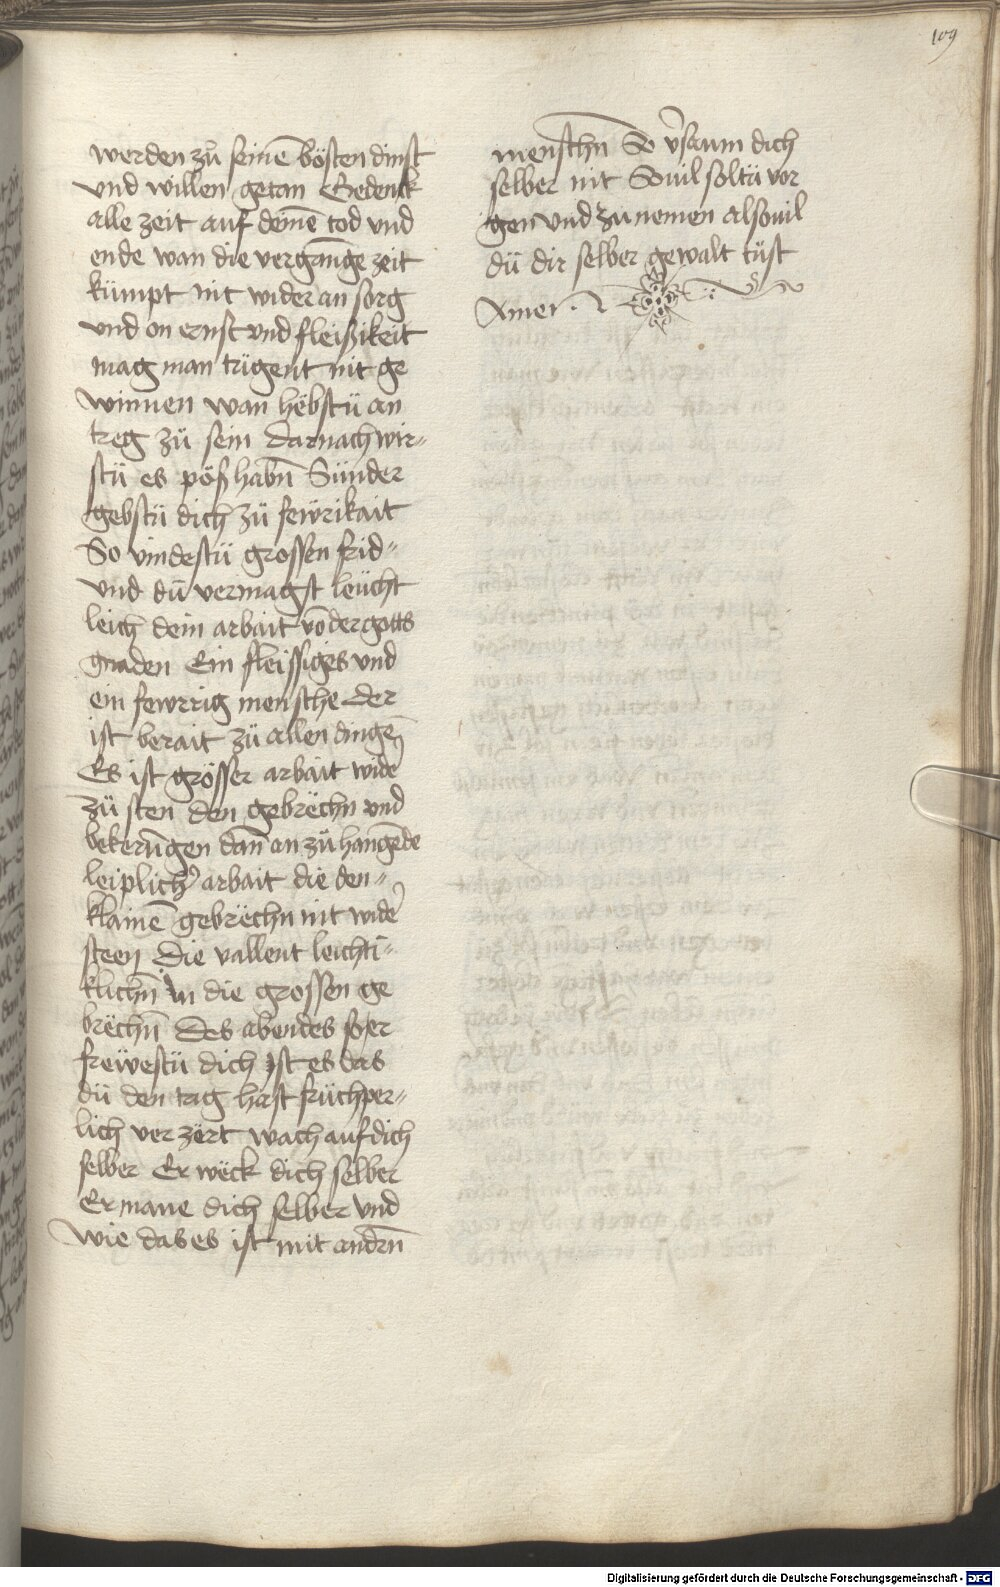 109
werden zů seinē bösten dinst
vnd willen getan Gedenck
alle zeit auf deinē tod vnd
ende wan die vergangē zeit
kümpt nit wider an sorg
vnd on ernst vnd fleißikeit
mag man tugent nit ge
winnen wan hëbstü an
treg zü sein darnach wir⸗
stü es pöß habn̄ Sünder
gebstü dich zü fewrikait
So vindestü grossen frid⸗
vnd dü vermagst leücht
leich dein arbait vō der gotts
gnaden Ein fleissiges vnd
ein fewrrig mensche der
ist berait zü allen dingē
Es ist grösser arbait wide᷑
zü sten den gebrëchn vnd
bekerūgen dan̄ an zü hangēde
leiplich᷑ arbait die den⸗
klainē gebrëchn nit wide᷑
steen Die vallent leichti⸗
klichn̄ in die grossen ge
brëchn̄ Des abendes so er
frëwestü dich ist es das
dü den tag hast früchper⸗
lich ver zërt wach auf dich
selber Er wëck dich selber
Er mane dich selber vnd
wie das es ist mit andrn̄
menschn̄ So v᷑saum dich
selber nit Souil soltü vor
gen vnd zu nemen alsouil
dü dir selber gewalt tüst
Amen
Digitalisierung gefördert durch die Deutsche Forschungsgemeinschaft - DFG